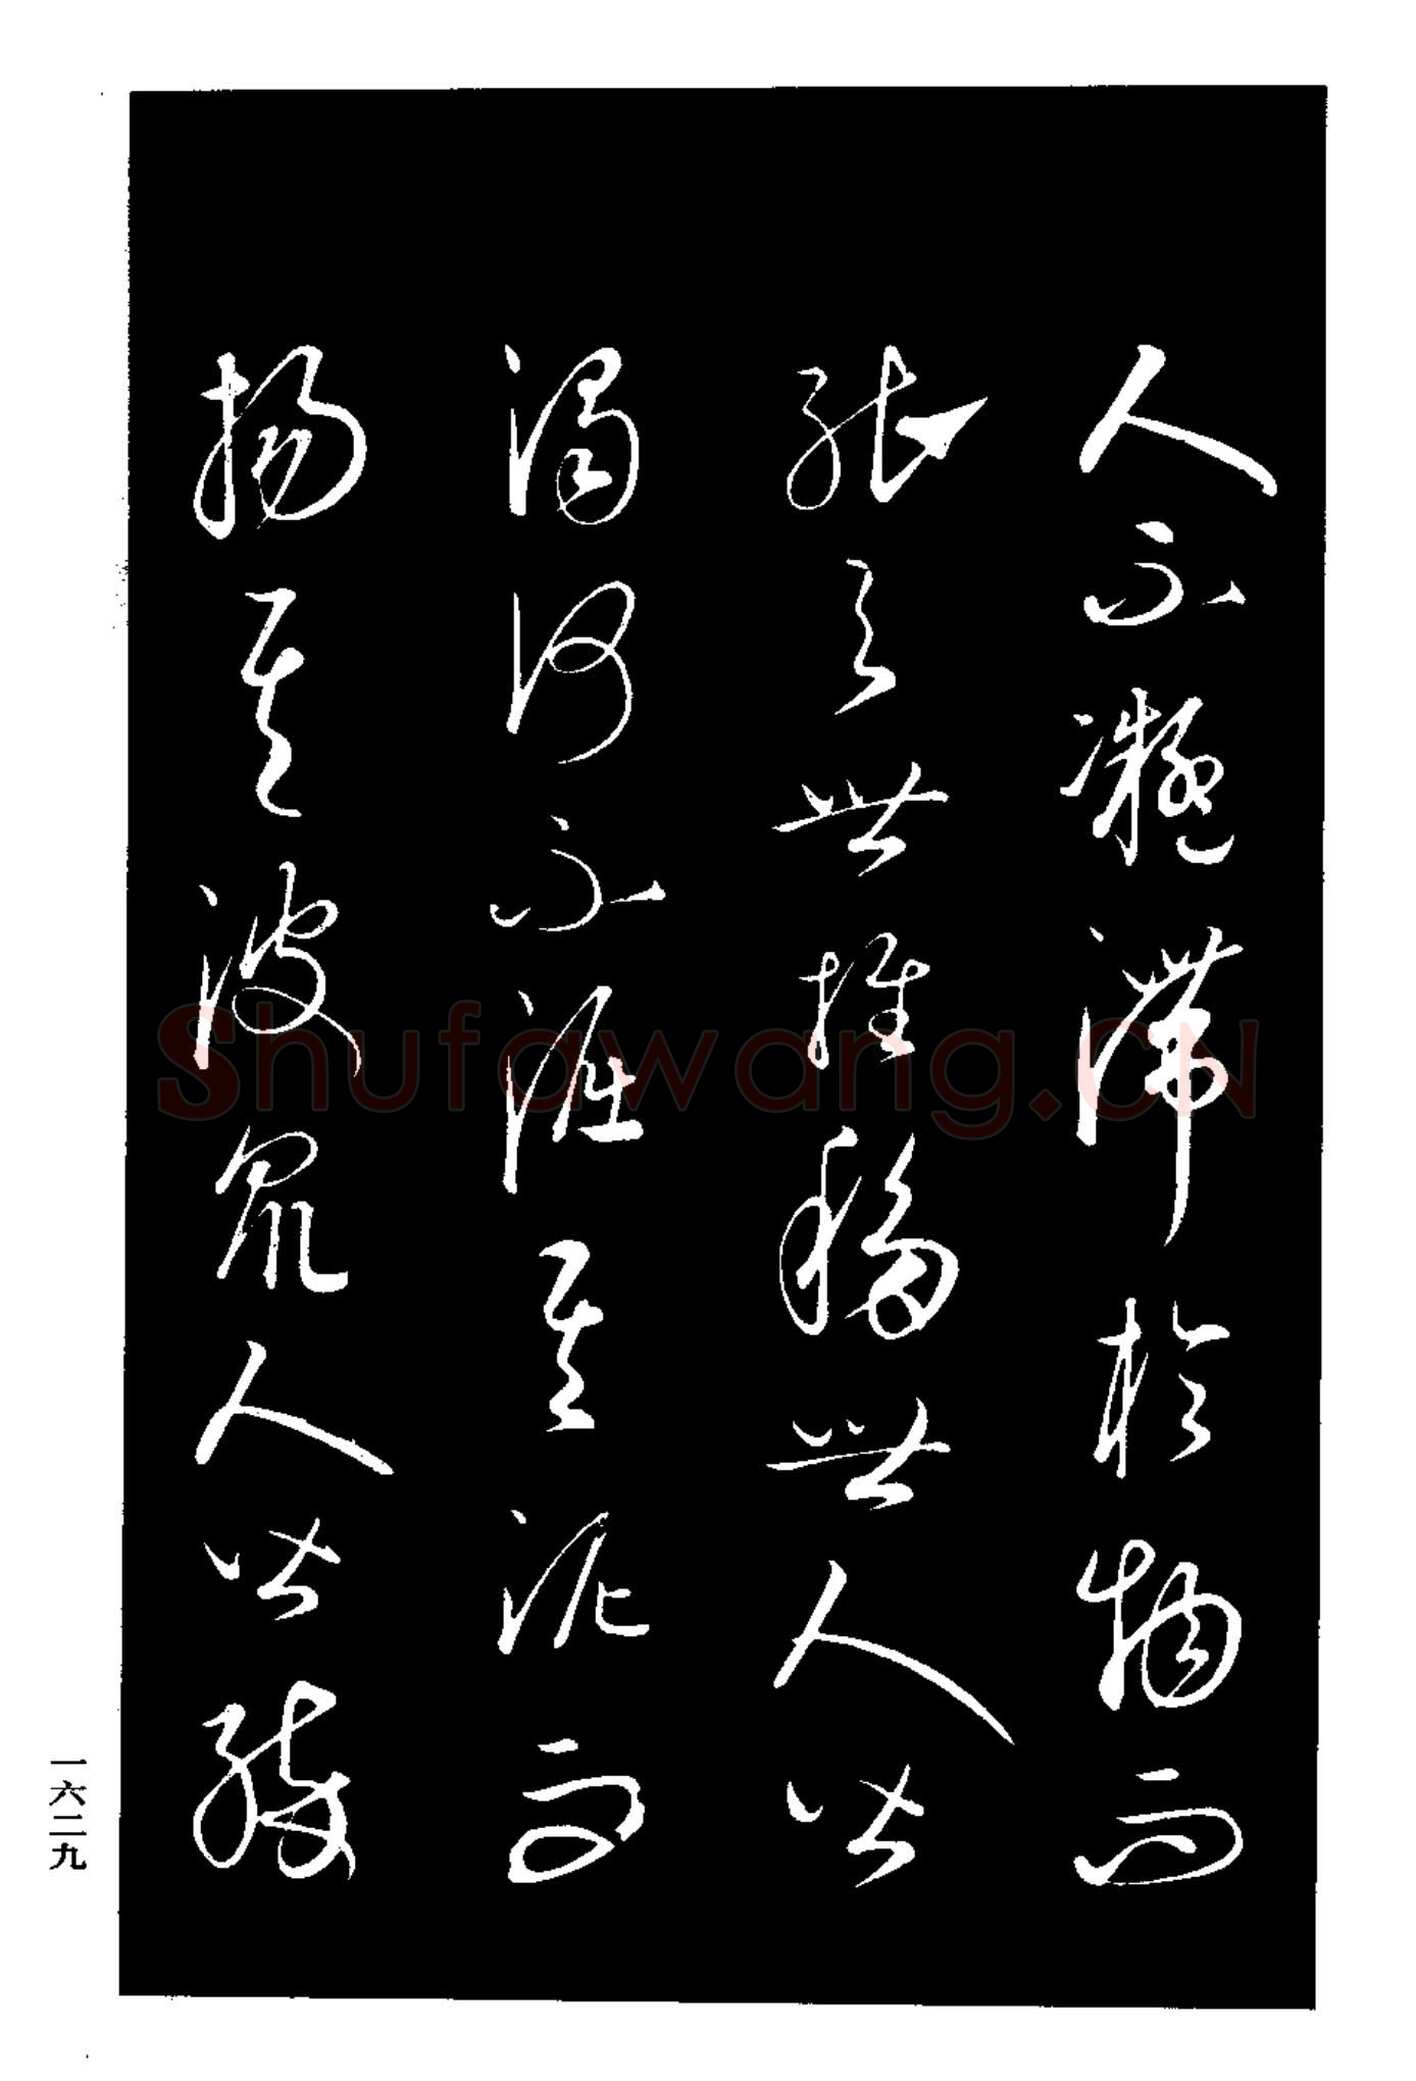 人不凝滯於物而
能與世推移世人皆
濁何不淈其泥而
揚其波眾人皆醉
一六二九
Shufawang.CN